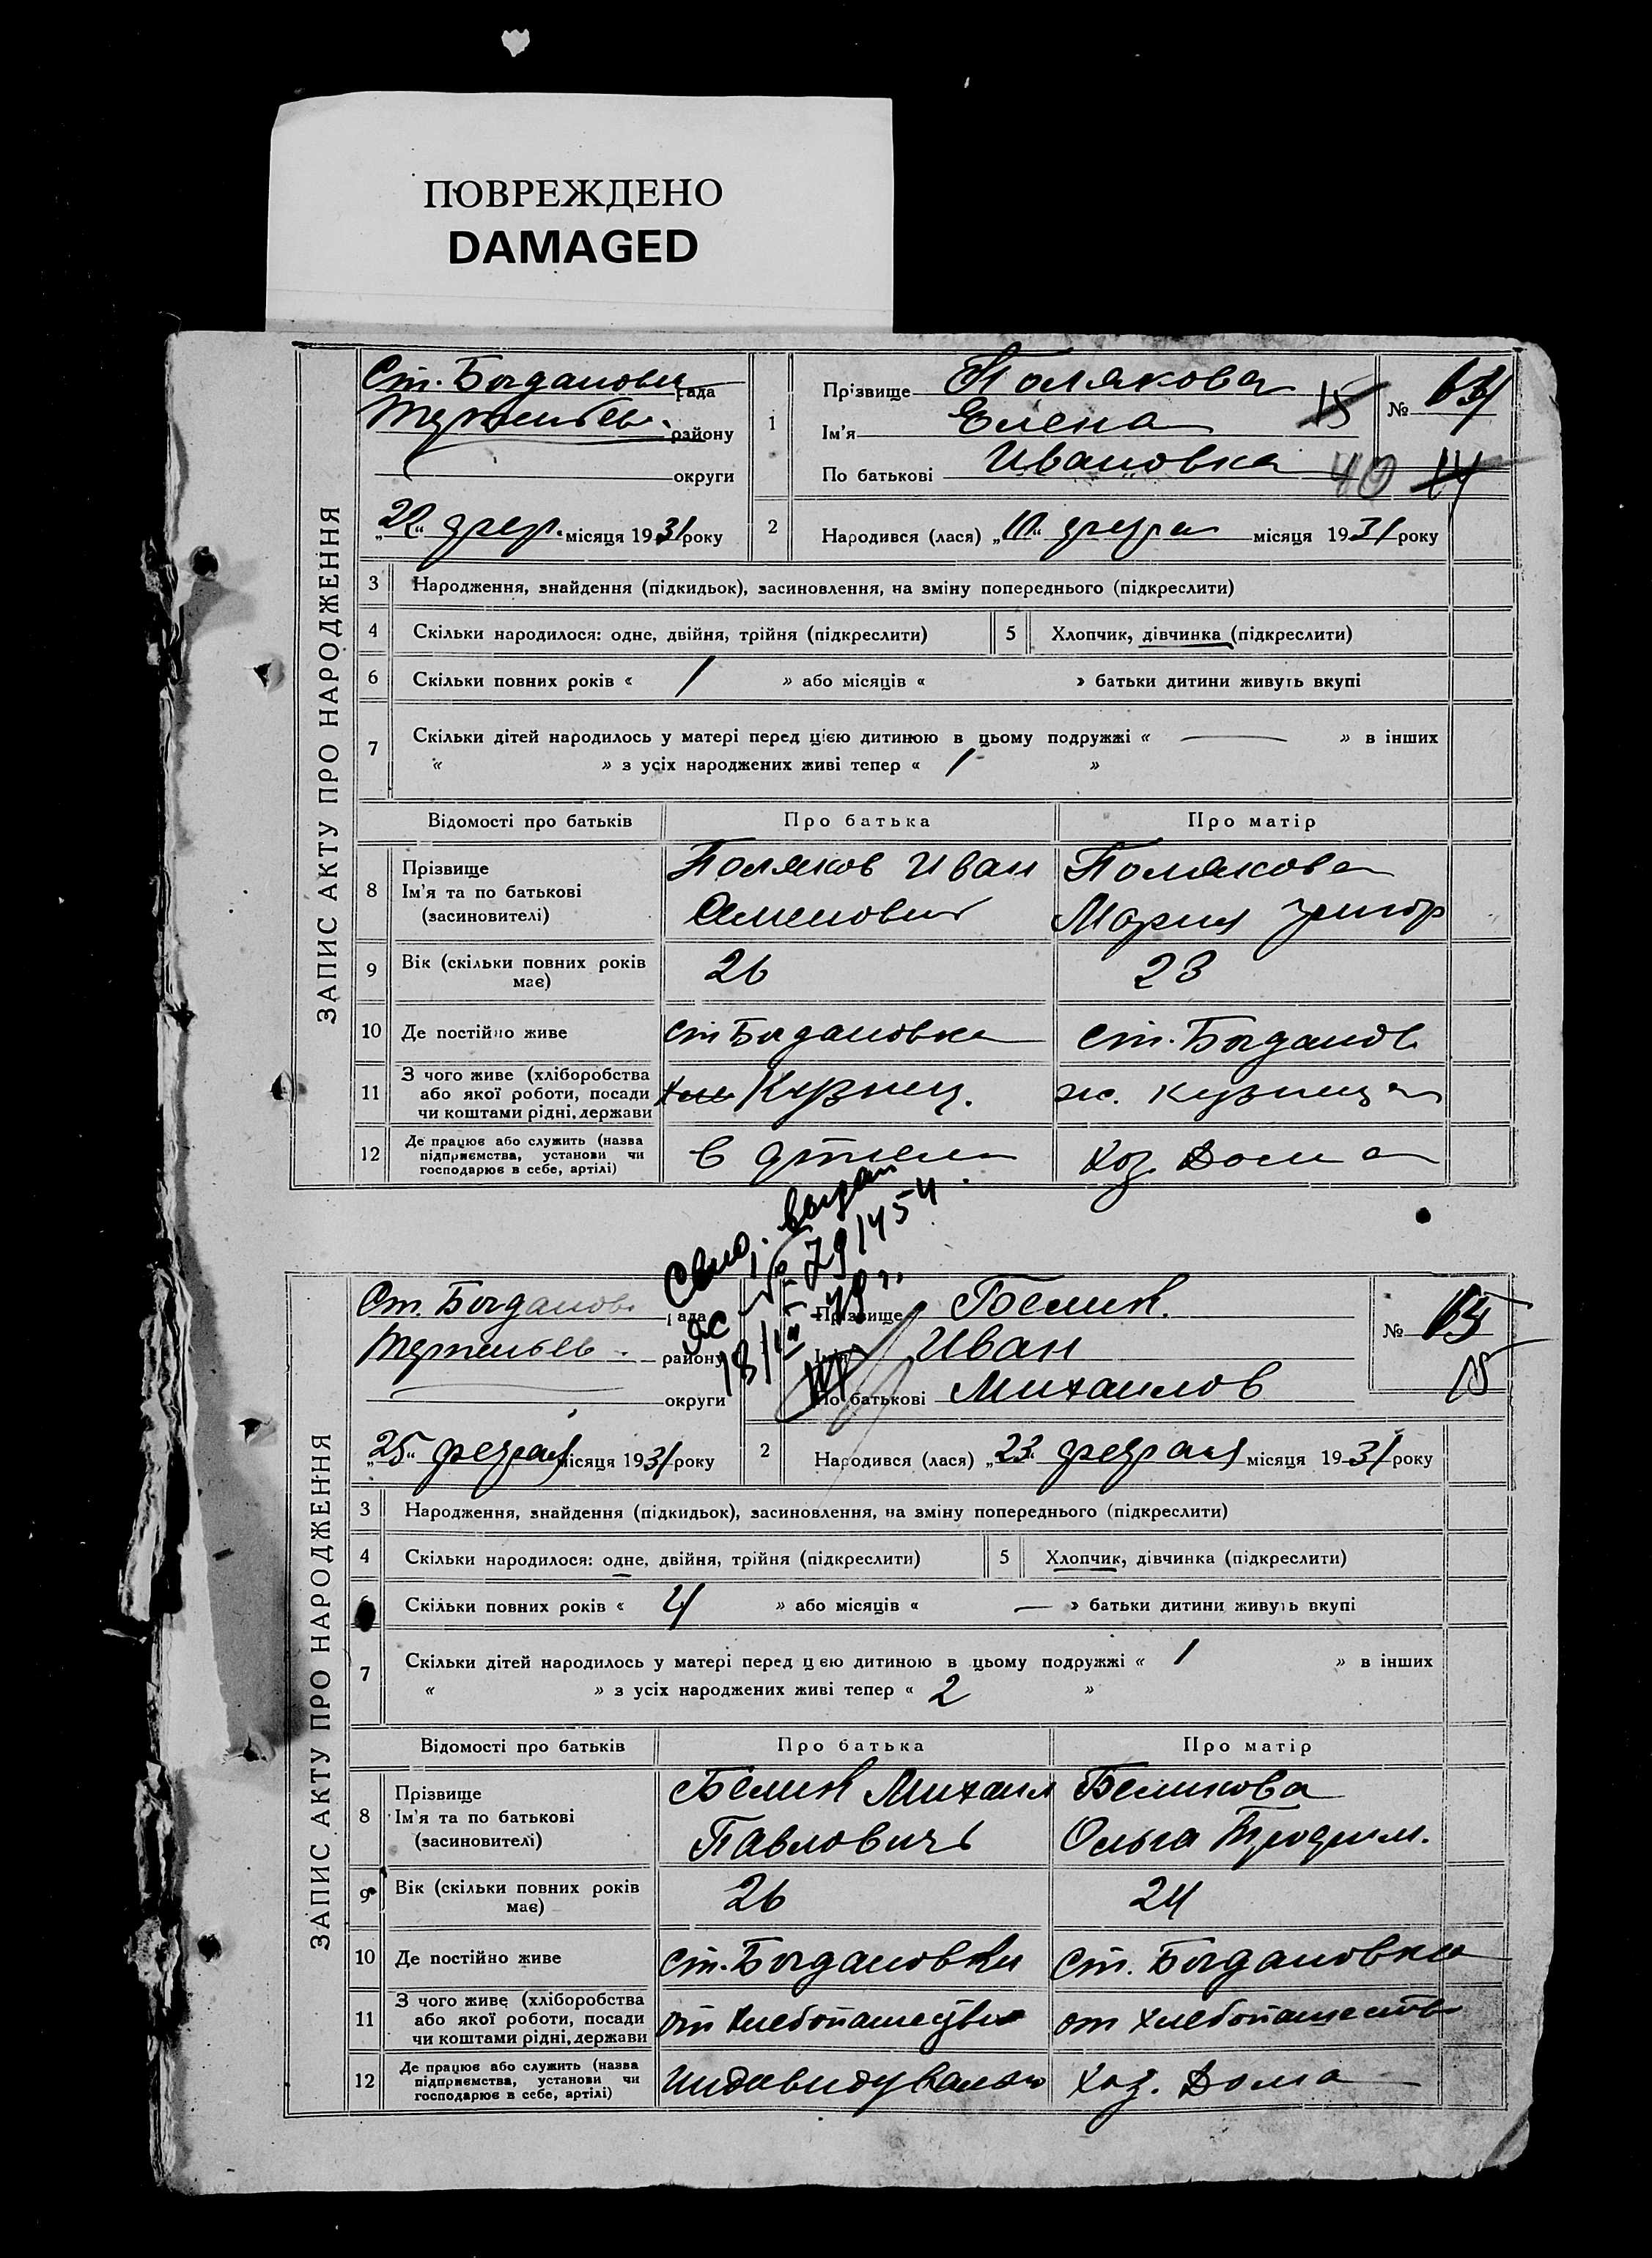 ПОВРЕЖДЕНО
DAMAGED
ЗАПИС АКТУ ПРО НАРОДЖЕННЯ
Ст. Богдановка рада
району
округи
„20“ февр. місяця 1931 року
1
Прізвище Полякова
Ім'я Елена 15
По батькові Ивановна 40
№
14
2 Народився (лася) „10“ февра місяця 1931 року
3 Народження, знайдення (підкидьок), засиновлення, на зміну попереднього (підкреслити)
4 Скільки народилося: одне, двійня, трійня (підкреслити) 5 Хлопчик, дівчинка (підкреслити)
6 Скільки повних років « 1 » або місяців « » батьки дитини живуть вкупі
7 Скільки дітей народилось у матері перед цією дитиною в цьому подружжі « — » в інших
« » з усіх народжених живі тепер « 1 »
Відомості про батьків Про батька Про матір
8 Прізвище
Ім'я та по батькові
(засиновителі)
Поляков Иван
Семенович
Полякова
Мария Григор
9 Вік (скільки повних років
має)
26 23
10 Де постійно живе ст Богдановка ст. Богданов
11 З чого живе (хліборобства
або якої роботи, посади
чи коштами рідні, держави
Кузнец. ж. кузнеца
12 Де працює або служить (назва
підприємства, установи чи
господарює в себе, артілі)
в артели Хоз. Дома
Свид. выдан
№ 791454
18/III-49 г.
ЗАПИС АКТУ ПРО НАРОДЖЕННЯ
Ст. Богданов рада
району
округи
„25“ февраля місяця 1931 року
Прізвище Белик.
Иван
По батькові Михаилов
№ 15
15
2 Народився (лася) „23“ февраля місяця 1931 року
3 Народження, знайдення (підкидьок), засиновлення, на зміну попереднього (підкреслити)
4 Скільки народилося: одне, двійня, трійня (підкреслити) 5 Хлопчик, дівчинка (підкреслити)
Скільки повних років « 4 » або місяців « — » батьки дитини живуть вкупі
7 Скільки дітей народилось у матері перед цею дитиною в цьому подружжі « 1 » в інших
« » з усіх народжених живі тепер « 2 »
Відомості про батьків Про батька Про матір
8 Прізвище
Ім'я та по батькові
(засиновителі)
Белик Михаил
Павловичь
Беликова
Ольга Трофим.
9 Вік (скільки повних років
має)
26 24
10 Де постійно живе ст. Богдановки ст. Богдановка
11 З чого живе (хліборобства
або якої роботи, посади
чи коштами рідні, держави
от хлебопашества от хлебопашеств
12 Де працює або служить (назва
підприємства, установи чи
господарює в себе, артілі)
Хоз. Дома